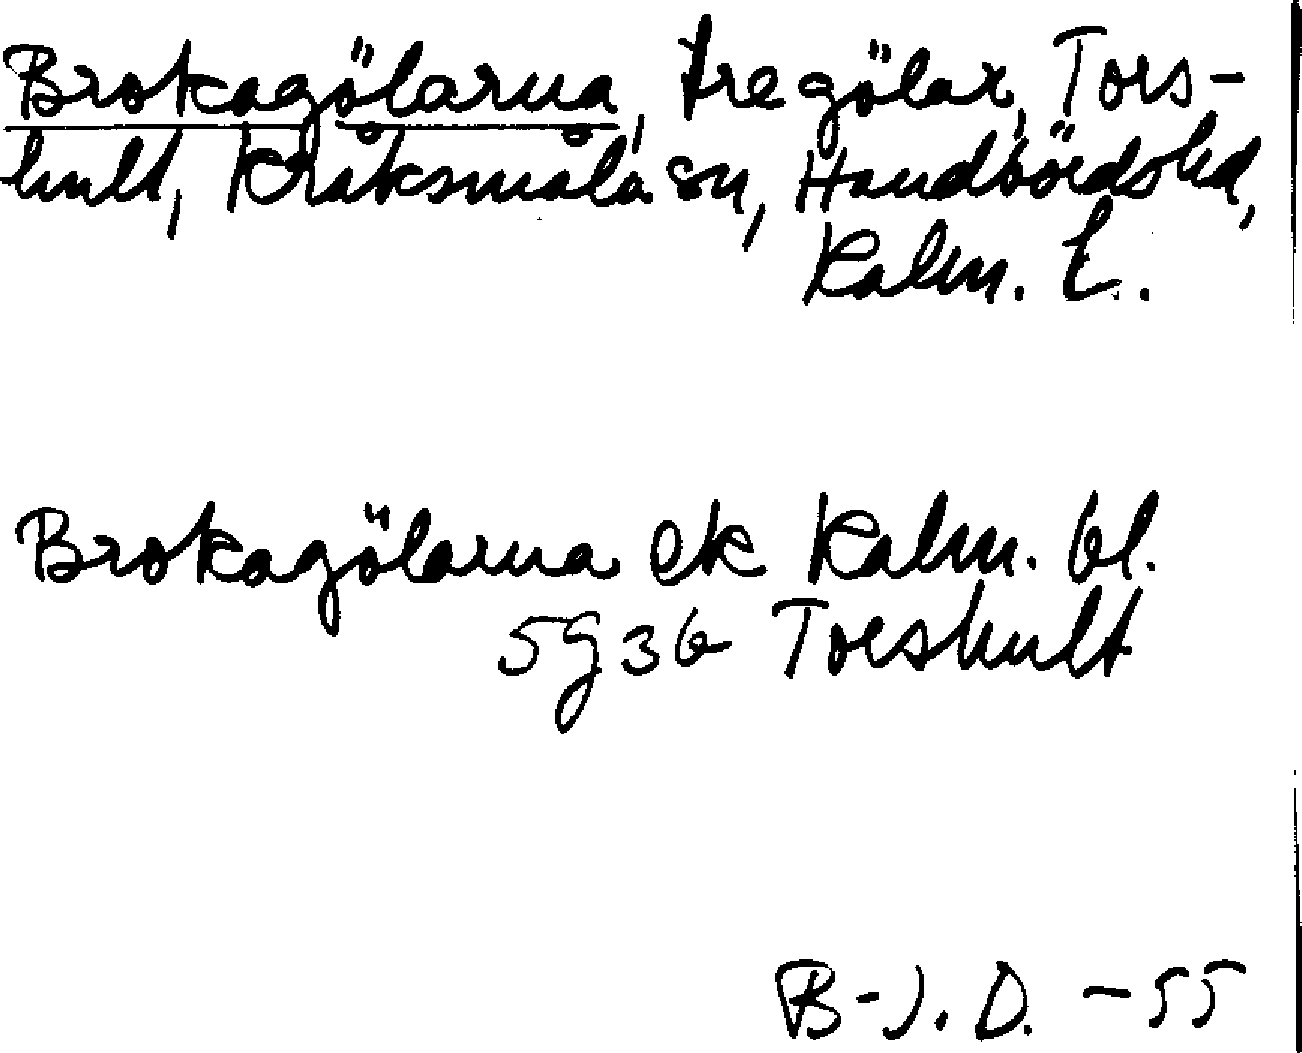 Brokagölarna, tre gölar, Tors-
hult, Kråksmåla sn, Handbörds hd,
Kalm. L.
Brokagölarna ek Kalm. bl.
5g36 Torshult
B-J. D. -55